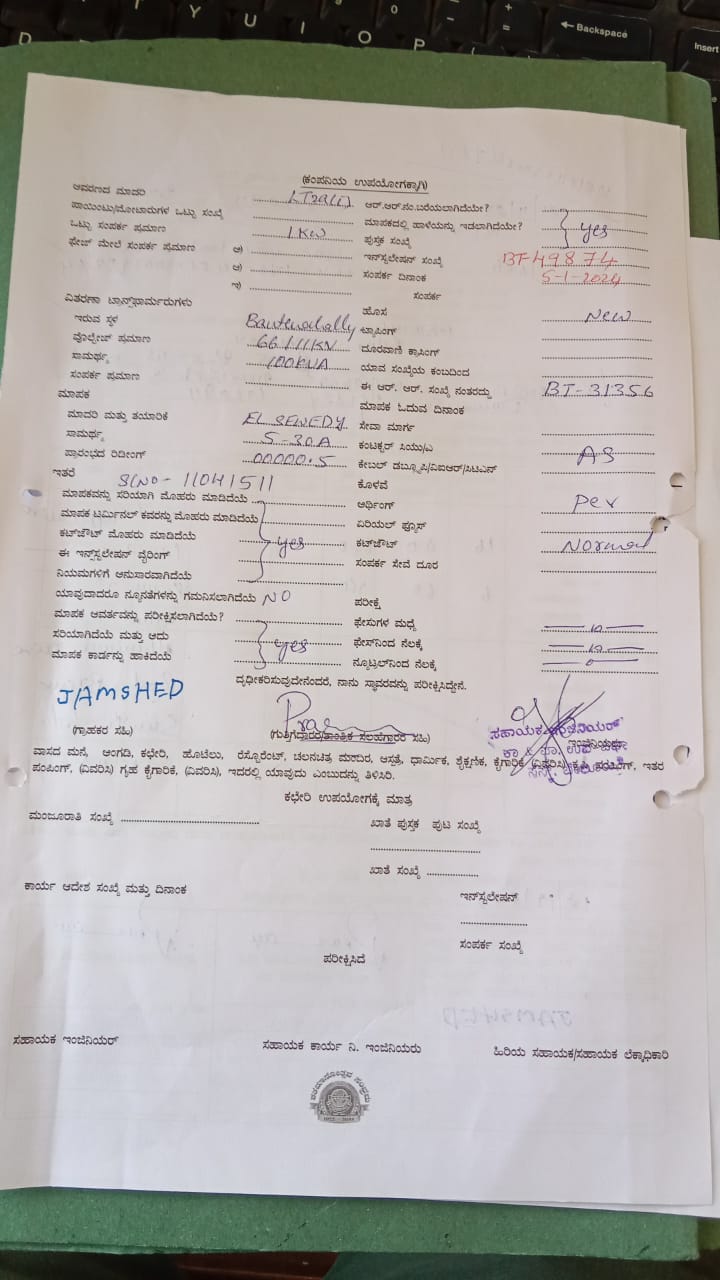 (ಕಂಪನಿಯ ಉಪಯೋಗಕ್ಕಾಗಿ)
ಆವರಣದ ಮಾದರಿ LT2a(i) ಆರ್.ಆರ್.ನಂ.ಬರೆಯಲಾಗಿದೆಯೇ?
ಪಾಯಿಂಟು/ಮೋಟಾರುಗಳ ಒಟ್ಟು ಸಂಖ್ಯೆ ಮಾಪಕದಲ್ಲಿ ಹಾಳೆಯನ್ನು ಇಡಲಾಗಿದೆಯೇ? yes
ಒಟ್ಟು ಸಂಪರ್ಕ ಪ್ರಮಾಣ 1KW ಪುಸ್ತಕ ಸಂಖ್ಯೆ
ಫೇಜ್ ಮೇಲೆ ಸಂಪರ್ಕ ಪ್ರಮಾಣ ಅ) ಇನ್‌ಸ್ಟಲೇಷನ್ ಸಂಖ್ಯೆ BT-49874
ಆ) ಸಂಪರ್ಕ ದಿನಾಂಕ 5-1-2024
ಇ) ಸಂಪರ್ಕ
ವಿತರಣಾ ಟ್ರಾನ್ಸ್‌ಫಾರ್ಮರುಗಳು ಹೊಸ New
ಇರುವ ಸ್ಥಳ ಟ್ಯಾಪಿಂಗ್
ವೊಲ್ಟೇಜ್ ಪ್ರಮಾಣ 66/11KV ದೂರವಾಣಿ ಕ್ರಾಸಿಂಗ್
ಸಾಮರ್ಥ್ಯ 100KVA ಯಾವ ಸಂಖ್ಯೆಯ ಕಂಬದಿಂದ
ಸಂಪರ್ಕ ಪ್ರಮಾಣ ಈ ಆರ್. ಆರ್. ಸಂಖ್ಯೆ ನಂತರದ್ದು BT-31356
ಮಾಪಕ ಮಾಪಕ ಓದುವ ದಿನಾಂಕ
ಮಾದರಿ ಮತ್ತು ತಯಾರಿಕೆ EL SEWEDY ಸೇವಾ ಮಾರ್ಗ
ಸಾಮರ್ಥ್ಯ 5-30A ಕಂಟಕ್ಟರ್ ಸಿಯು/ಎ AS
ಪ್ರಾರಂಭದ ರಿಡೀಂಗ್ 00000.5 ಕೇಬಲ್ ಡಬ್ಲ್ಯೂಪಿ/ವಿಐಆರ್/ಸಿಟಿಎನ್
ಇತರೆ S/NO-11041511 ಕೊಳವೆ
ಮಾಪಕವನ್ನು ಸರಿಯಾಗಿ ಮೊಹರು ಮಾಡಿದೆಯೆ ಅರ್ಥಿಂಗ್ per
ಮಾಪಕ ಟರ್ಮಿನಲ್ ಕವರನ್ನು ಮೊಹರು ಮಾಡಿದೆಯೆ ಏರಿಯಲ್ ಫ್ಯೂಸ್
ಕಟ್‌ಔಟ್ ಮೊಹರು ಮಾಡಿದೆಯೆ yes ಕಟ್‌ಔಟ್ Normal
ಈ ಇನ್‌ಸ್ಟಲೇಷನ್ ವೈರಿಂಗ್ ಸಂಪರ್ಕ ಸೇವೆ ದೂರ
ನಿಯಮಗಳಿಗೆ ಅನುಸಾರವಾಗಿದೆಯೆ
ಯಾವುದಾದರೂ ನ್ಯೂನತೆಗಳನ್ನು ಗಮನಿಸಲಾಗಿದೆಯೆ NO ಪರೀಕ್ಷೆ
ಮಾಪಕ ಆವರ್ತವನ್ನು ಪರೀಕ್ಷಿಸಲಾಗಿದೆಯೆ? ಫೇಸುಗಳ ಮಧ್ಯೆ
ಸರಿಯಾಗಿದೆಯೆ ಮತ್ತು ಅದು yes ಫೇಸ್‌ನಿಂದ ನೆಲಕ್ಕೆ
ಮಾಪಕ ಕಾರ್ಡನ್ನು ಹಾಕಿದೆಯೆ ನ್ಯೂಟ್ರಲ್‌ನಿಂದ ನೆಲಕ್ಕೆ
ದೃಢೀಕರಿಸುವುದೇನೆಂದರೆ, ನಾನು ಸ್ಥಾವರವನ್ನು ಪರೀಕ್ಷಿಸಿದ್ದೇನೆ.
JAMSHED
ಸಹಾಯಕ ಇಂಜಿನಿಯರ್
(ಗ್ರಾಹಕರ ಸಹಿ) (ಗುತ್ತಿಗದ್ದಾರರ/ತಾಂತ್ರಿಕ ಸಲಹೆಗಾರರ ಸಹಿ)
ವಾಸದ ಮನೆ, ಅಂಗಡಿ, ಕಛೇರಿ, ಹೊಟೇಲು, ರೆಸ್ಟೋರೆಂಟ್, ಚಲನಚಿತ್ರ ಮಂದಿರ, ಆಸ್ಪತ್ರೆ, ಧಾರ್ಮಿಕ, ಶೈಕ್ಷಣಿಕ, ಕೈಗಾರಿಕೆ (ವಿವರಿಸಿ) ಇತರ
ಪಂಪಿಂಗ್, (ವಿವರಿಸಿ) ಗೃಹ ಕೈಗಾರಿಕೆ, (ವಿವರಿಸಿ), ಇದರಲ್ಲಿ ಯಾವುದು ಎಂಬುದನ್ನು ತಿಳಿಸಿರಿ.
ಕಛೇರಿ ಉಪಯೋಗಕ್ಕೆ ಮಾತ್ರ
ಮಂಜೂರಾತಿ ಸಂಖ್ಯೆ ಖಾತೆ ಪುಸ್ತಕ ಪುಟ ಸಂಖ್ಯೆ
ಖಾತೆ ಸಂಖ್ಯೆ
ಕಾರ್ಯ ಆದೇಶ ಸಂಖ್ಯೆ ಮತ್ತು ದಿನಾಂಕ ಇನ್‌ಸ್ಟಲೇಷನ್
ಸಂಪರ್ಕ ಸಂಖ್ಯೆ
ಪರೀಕ್ಷಿಸಿದೆ
ಸಹಾಯಕ ಇಂಜಿನಿಯರ್ ಸಹಾಯಕ ಕಾರ್ಯ ನಿ. ಇಂಜಿನಿಯರು ಹಿರಿಯ ಸಹಾಯಕ/ಸಹಾಯಕ ಲೆಕ್ಕಾಧಿಕಾರಿ